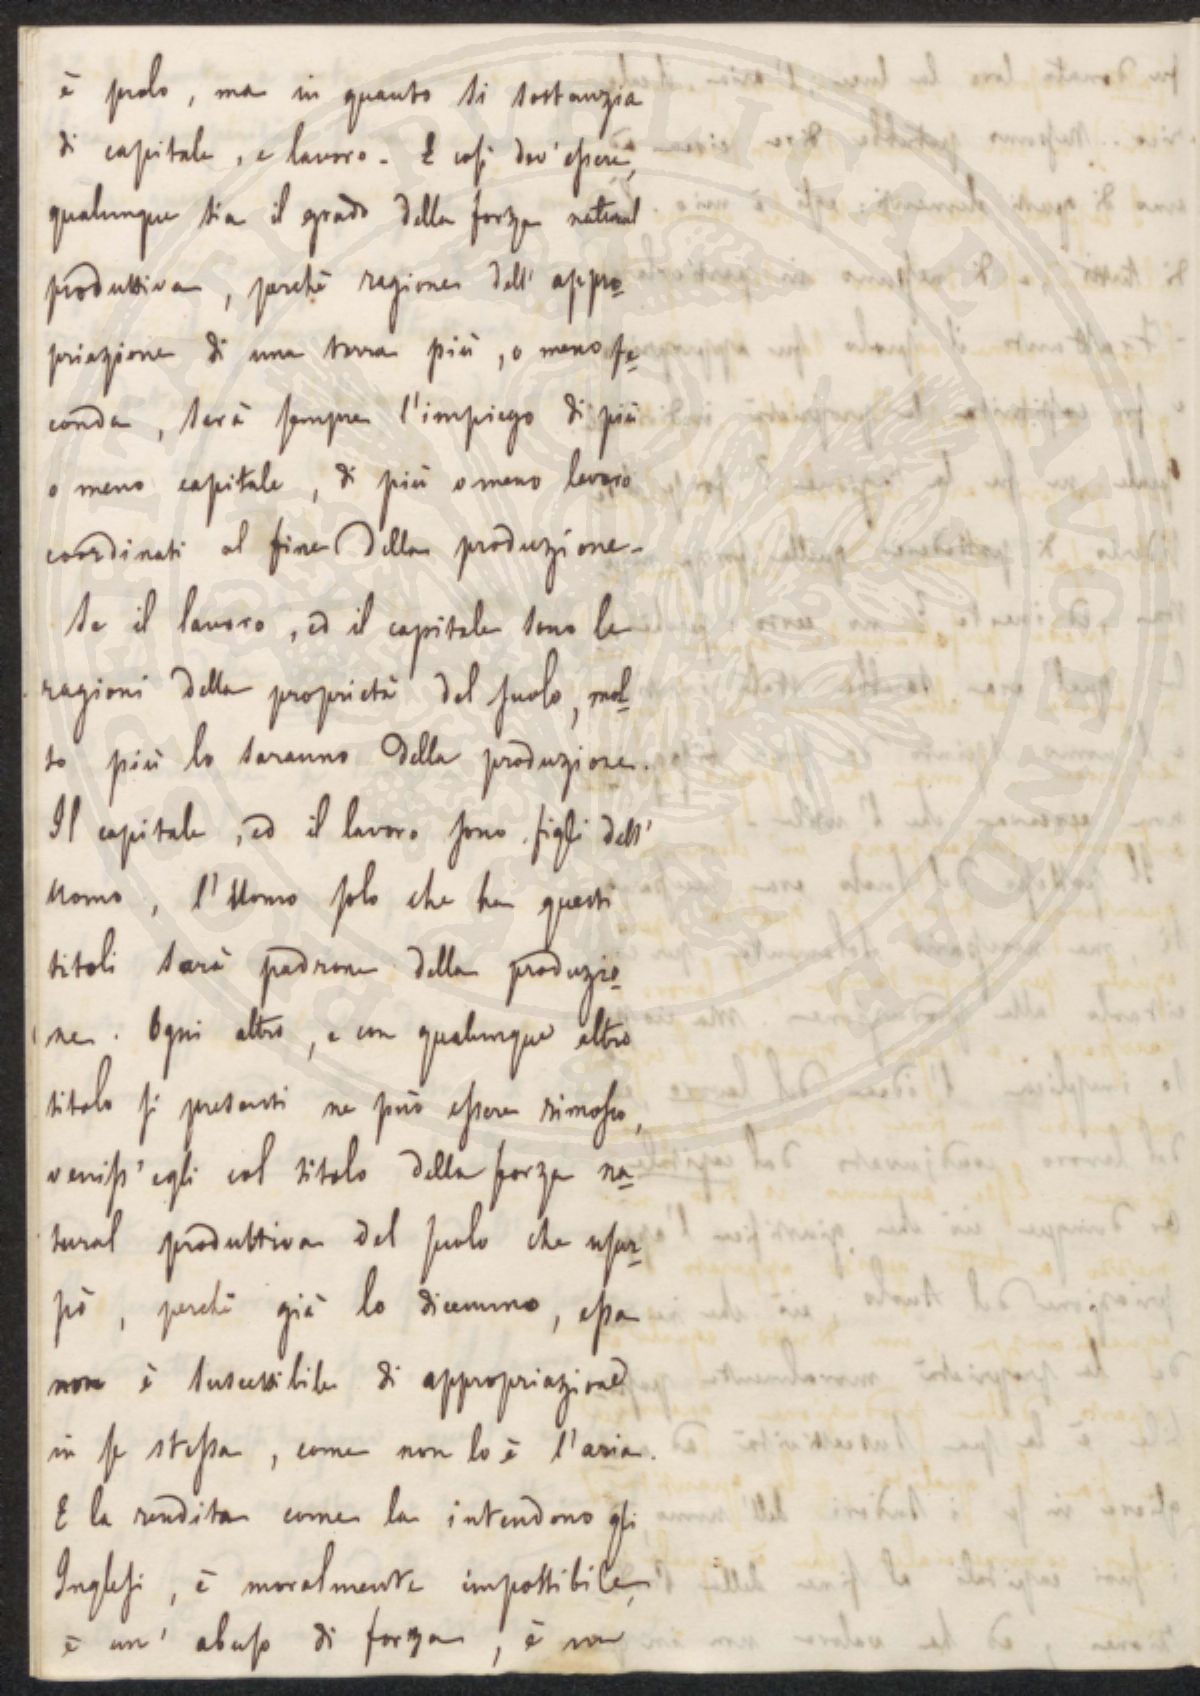 è suolo, ma in quanto si sostanzia
di capitale, e lavoro. E così dev'essere,
qualunque sia il grado della forza natural
produttiva, perchè ragione dell'appro=
priazione di una terra più, o meno fe=
conda, sarà sempre l'impiego di più
o meno capitale, di più o meno lavoro
coordinati al fine della produzione.
Se il lavoro, ed il capitale sono le
ragioni della proprietà del suolo, mol=
to più lo saranno della produzione.
Il capitale, ed il lavoro sono figli dell'
Uomo, l'Uomo solo che ha questi
titoli sarà padrone della produzio=
ne. Ogni altro, e con qualunque altro
titolo si presenti ne può essere rimosso,
veniss'egli col titolo della forza na=
tural produttiva del suolo che usur=
pò, perchè già lo dicemmo, essa
non è suscettibile di appropriazione
in se stessa, come non lo è l'aria.
E la rendita come la intendono gli
Inglesi, è moralmente impossibile,
è un' abuso di forza, è non